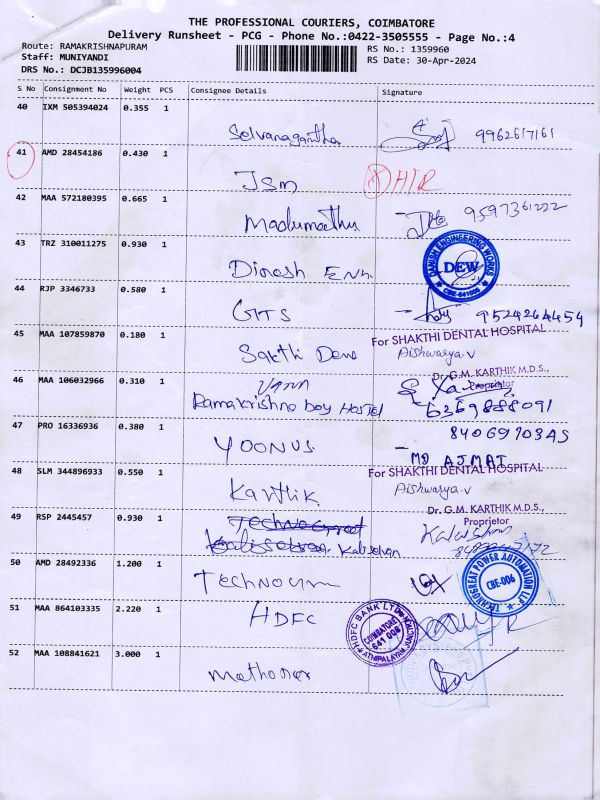 THE PROFESSIONAL COURIERS, COIMBATORE
Delivery Runsheet - PCG - Phone No.:0422-3505555 - Page No.:4
Route: RAMAKRISHNAPURAM RS No.: 1359960
Staff: MUNIYANDI RS Date: 30-Apr-2024
DRS No.: DCJB135996004
S No Consignment No Weight PCS Consignee Details Signature
40 IXM 505394024 0.355 1
Selvanagantha 9962617161
41 AMD 28454186 0.430 1
JSM HTR
42 MAA 572180395 0.665 1
Madumathu 9597361222
43 TRZ 310011275 0.930 1
Dinesh Enn.
DANISH ENGINEERING WORKS
DEW
CBE-641006
44 RJP 3346733 0.580 1
GITS 9524264454
45 MAA 107859870 0.180 1
For SHAKTHI DENTAL HOSPITAL
Sakthi Den Aishwarya.V
Dr. G.M. KARTHIK M.D.S.,
Proprietor
46 MAA 106032966 0.310 1
Ramakrishna boy Hostel 6369888091
47 PRO 16336936 0.380 1
YOONUS
MD AJMAT
48 SLM 344896933 0.550 1
For SHAKTHI DENTAL HOSPITAL
Karthik Aishwarya.V
Dr. G.M. KARTHIK M.D.S.,
Proprietor
49 RSP 2445457 0.930 1
Kaliselvan
50 AMD 28492336 1.200 1
TECHNOGREAT POWER AUTOMATION LLP
CBE-006
51 MAA 864103335 2.220 1
HDFC
HDFC BANK LTD
COIMBATORE
641 006
52 MAA 108841621 3.000 1